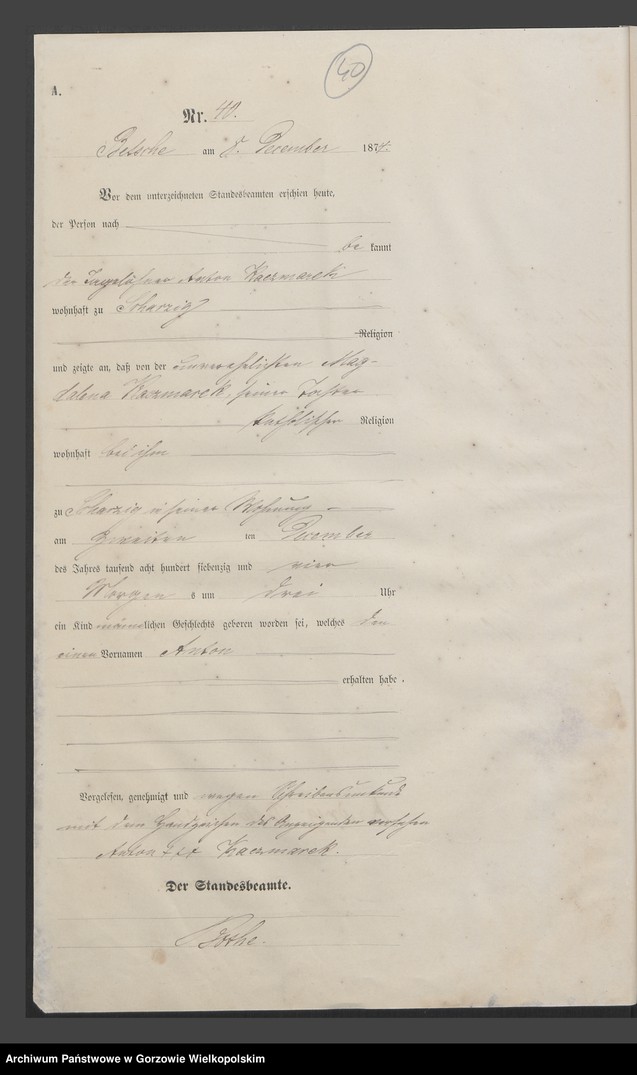 40
A.
Nr. 40.
Betsche am 8. December 1874.
Vor dem unterzeichneten Standesbeamten erschien heute,
der Person nach
be kannt
der Tagelöhner Anton Kaczmarek
wohnhaft zu Scharzig
Religion
und zeigte an, daß von der unverehelichten Mag-
dalena Kaczmarek, seiner Tochter
katholischer Religion
wohnhaft bei ihm
zu Scharzig in seiner Wohnung
am zweiten ten December
des Jahres tausend acht hundert siebenzig und vier
Morgen s um drei Uhr
ein Kind männlichen Geschlechts geboren worden sei, welches den
einen Vornamen Anton
erhalten habe.
Vorgelesen, genehmigt und wegen Schreibensunkunde
mit dem Handzeichen des Anzeigenden versehen
Anton +++ Kaczmarek.
Der Standesbeamte.
Bothe.
Archiwum Państwowe w Gorzowie Wielkopolskim